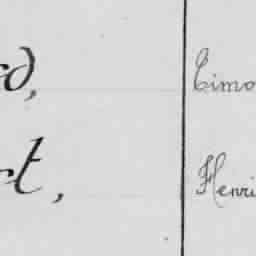 d, Timo
t, Henri